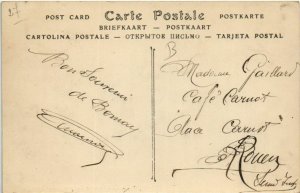 27
POST CARD Carte Postale POSTKARTE
BRIEFKAART — POSTKAART
CARTOLINA POSTALE - ОТКРЫТОЕ ПИСЬМО - TARJETA POSTAL
Bon Souvenir
de
Madame Gaillard
Café Carnot
Place Carnot
Rouen